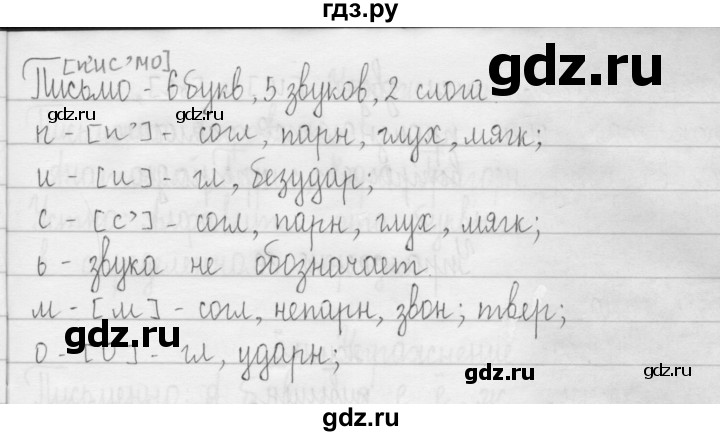 гдз.ру
[п'ис'мо]
gdz.ru
Письмо - 6 букв, 5 звуков, 2 слога.
gdz.ru gdz.ru gdz.ru
п - [п'] - согл, парн, глух, мягк;
и - [и] - гл, безудар;
с - [с'] - согл, парн, глух, мягк;
gdz.ru gdz.ru
ь - звука не обозначает.
м - [м] - согл, непарн, звон; твер;
gdz.ru
о - [о] - гл, ударн;
gdz.ru gdz.ru
gdz.ru